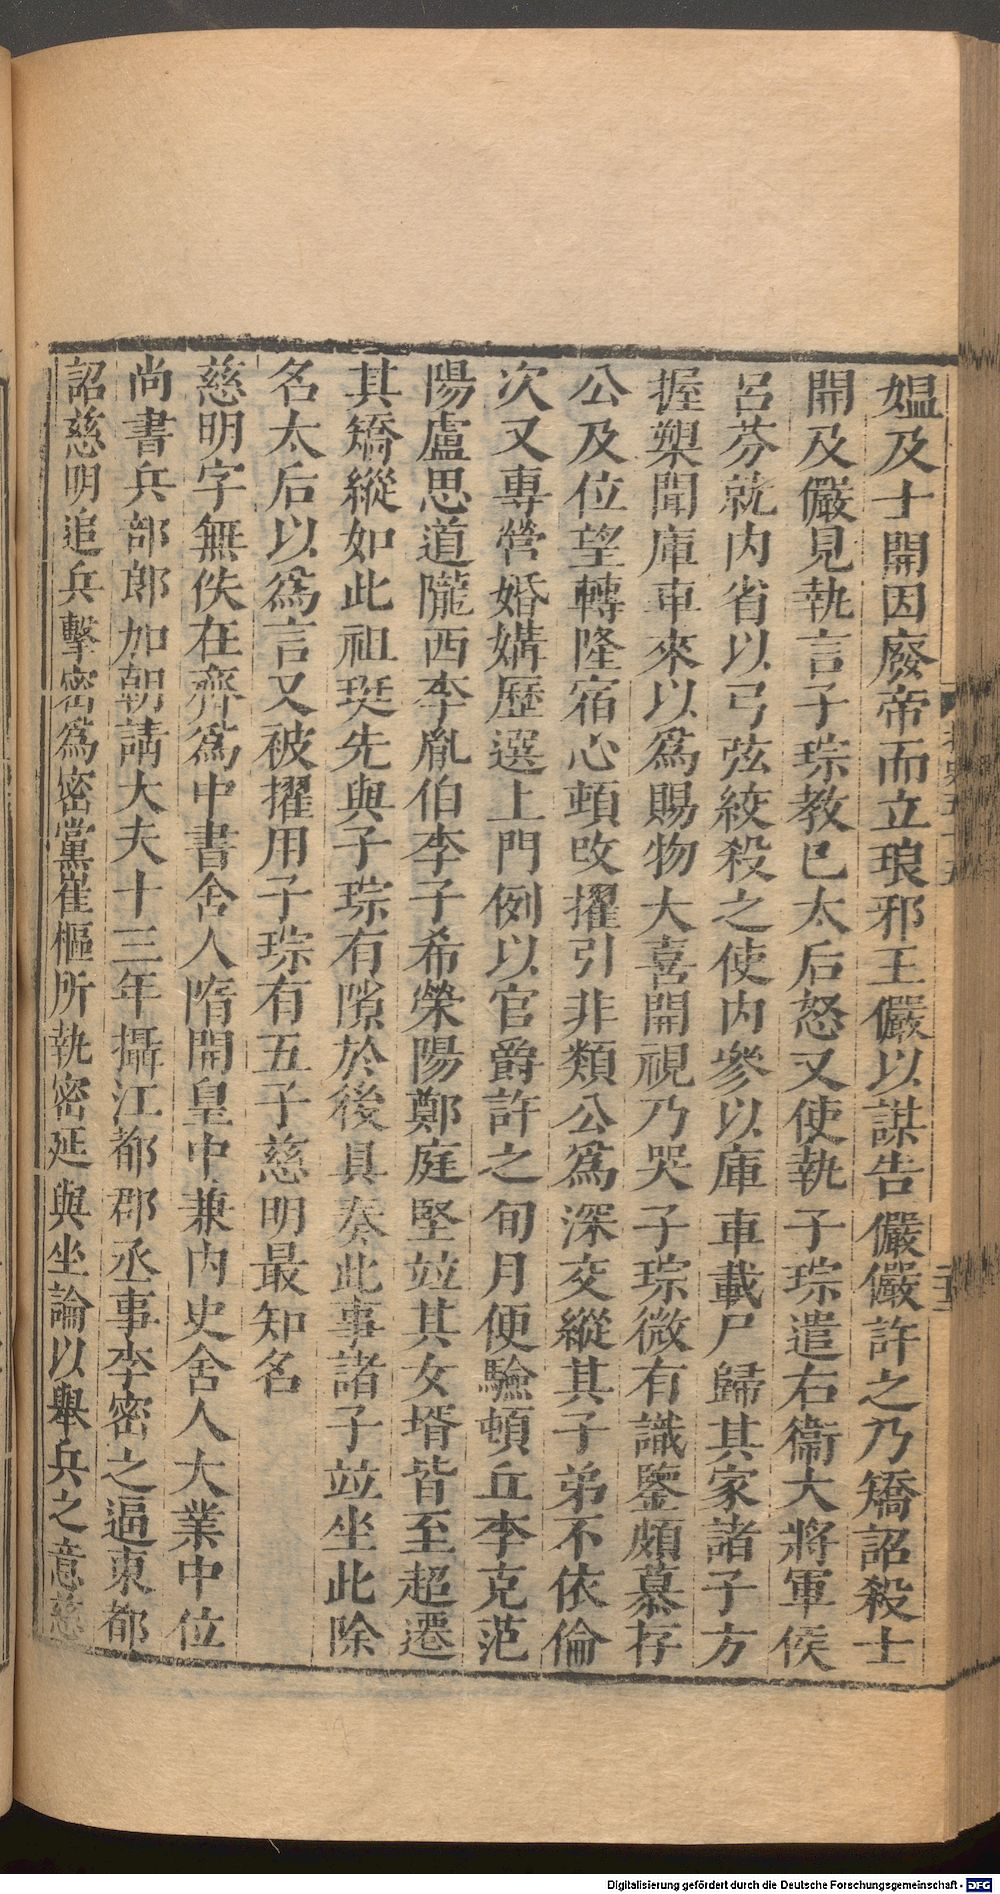 媼及士開因廢帝而立琅邪王儼以謀告儼儼許之乃矯詔殺士
開及儼見執言子琮教已太后怒又使執子琮遣右衞大將軍侯
呂芬就内省以弓弦絞殺之使内參以庫車載尸歸其家諸子方
握槊聞庫車來以爲賜物大喜開視乃哭子琮微有識鑒頗慕存
公及位望轉隆宿心頓改擢引非類公爲深交縱其子弟不依倫
次又專營婚媾歷選上門例以官爵許之旬月便驗頓丘李克范
陽盧思道隴西李胤伯李子希滎陽鄭庭堅竝其女壻皆至超遷
其矯縱如此祖珽先與子琮有隙於後具奏此事諸子竝坐此除
名太后以爲言又被擢用子琮有五子慈明最知名
慈明字無佚在齊爲中書舍人隋開皇中兼内史舍人大業中位
尚書兵部郎加朝請大夫十三年攝江都郡丞事李密之逼東都
詔慈明追兵擊密爲密黨崔樞所執密延與坐論以舉兵之意慈
Digitalisierung gefördert durch die Deutsche Forschungsgemeinschaft - DFG